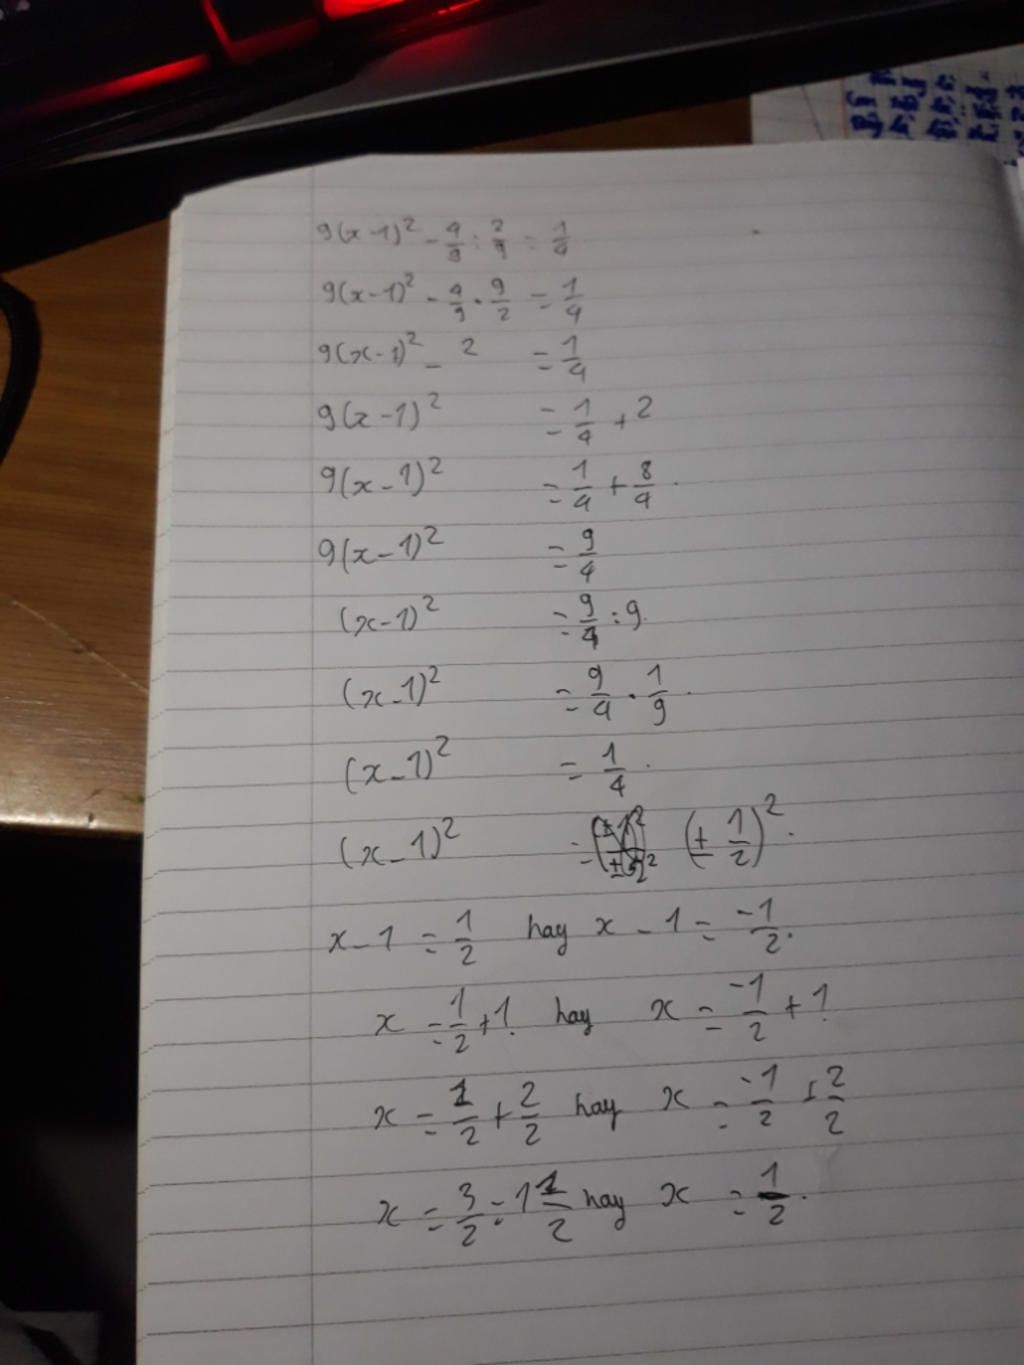 9(x-1)² - 4/9 : 2/9 = 1/4
9(x-1)² - 4/9 . 9/2 = 1/4
9(x-1)² - 2 = 1/4
9(x-1)² = 1/4 + 2
9(x-1)² = 1/4 + 8/4
9(x-1)² = 9/4
(x-1)² = 9/4 : 9
(x-1)² = 9/4 . 1/9
(x-1)² = 1/4
(x-1)² = (± 1/2)²
x-1 = 1/2 hay x-1 = -1/2.
x = 1/2 + 1 hay x = -1/2 + 1
x = 1/2 + 2/2 hay x = -1/2 + 2/2
x = 3/2 = 1 1/2 hay x = 1/2.